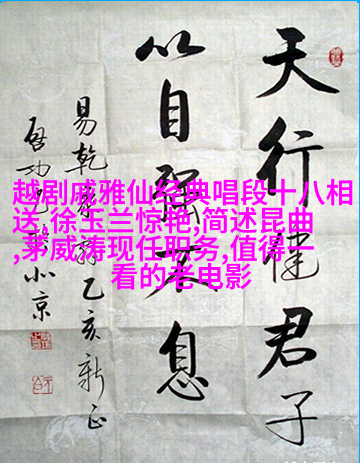 越剧戚雅仙经典唱段十八相
送,徐玉兰惊艳,简述昆曲
,茅威涛现任职务,值得一
看的老电影
天行健君子
以自强不息
易乾 乙亥新正
启功